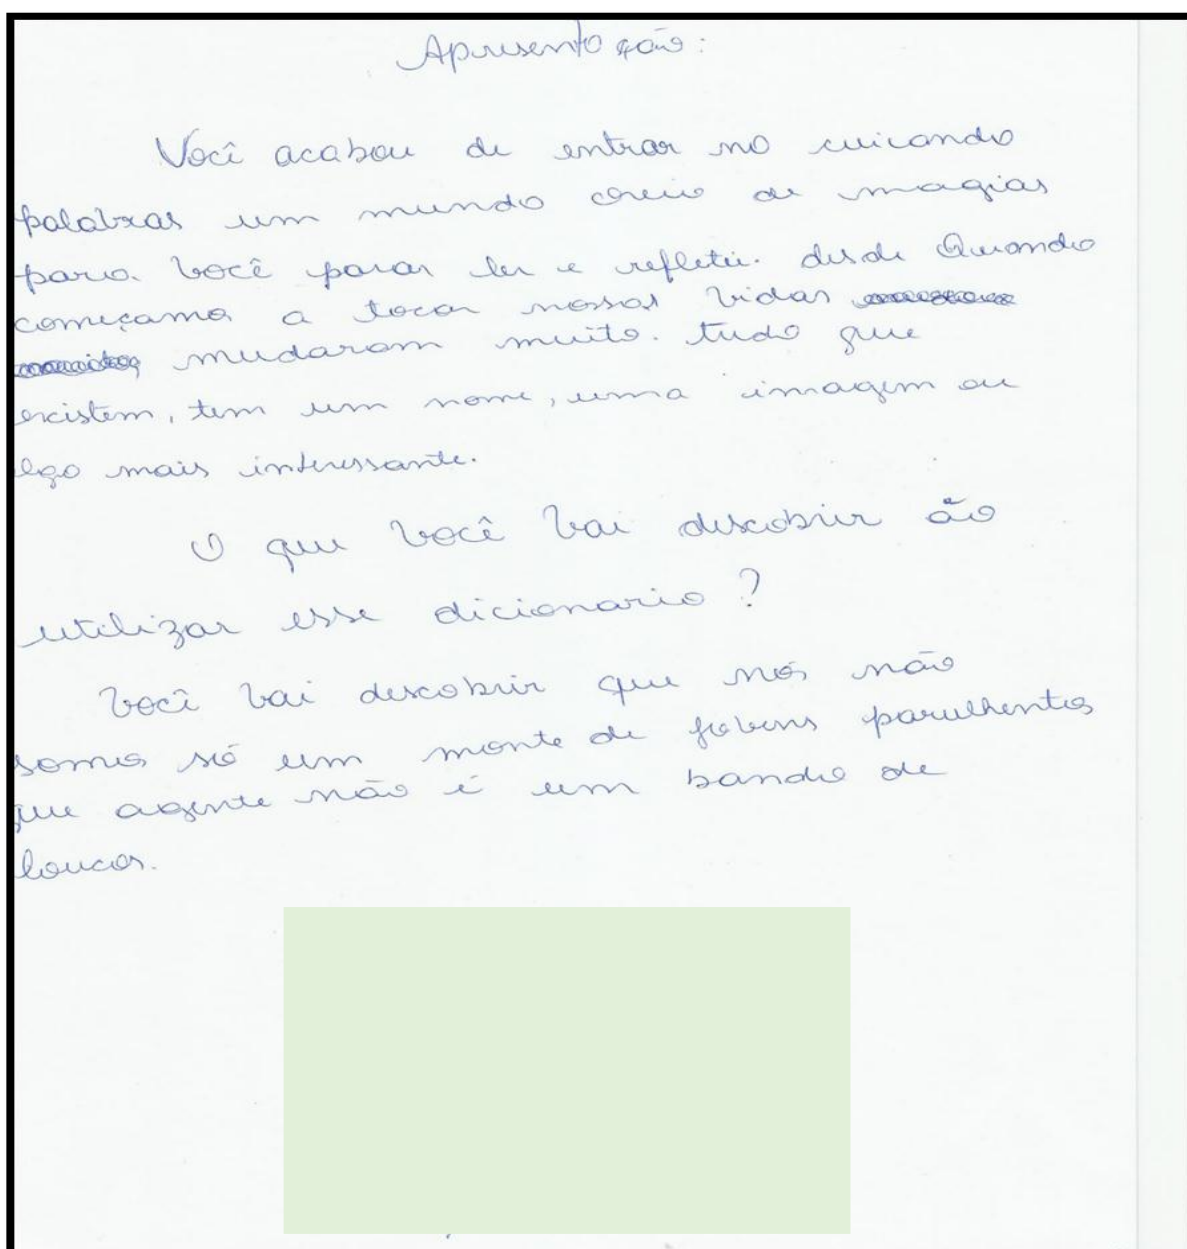 Apresentação:
Você acabou de entrar no cuicando
palabras um mundo cheio de magias
para você parar ler e refletir. desde Quando
começamos a tocar nossas vidas
mudaram muito. tudo que
existem, tem um nome, uma imagem ou
algo mais interessante.
O que você vai descobrir ão
utilizar esse dicionario?
você vai descobrir que nós não
somos só um monte de jovens barulhentos
que agente não é um bando de
loucos.